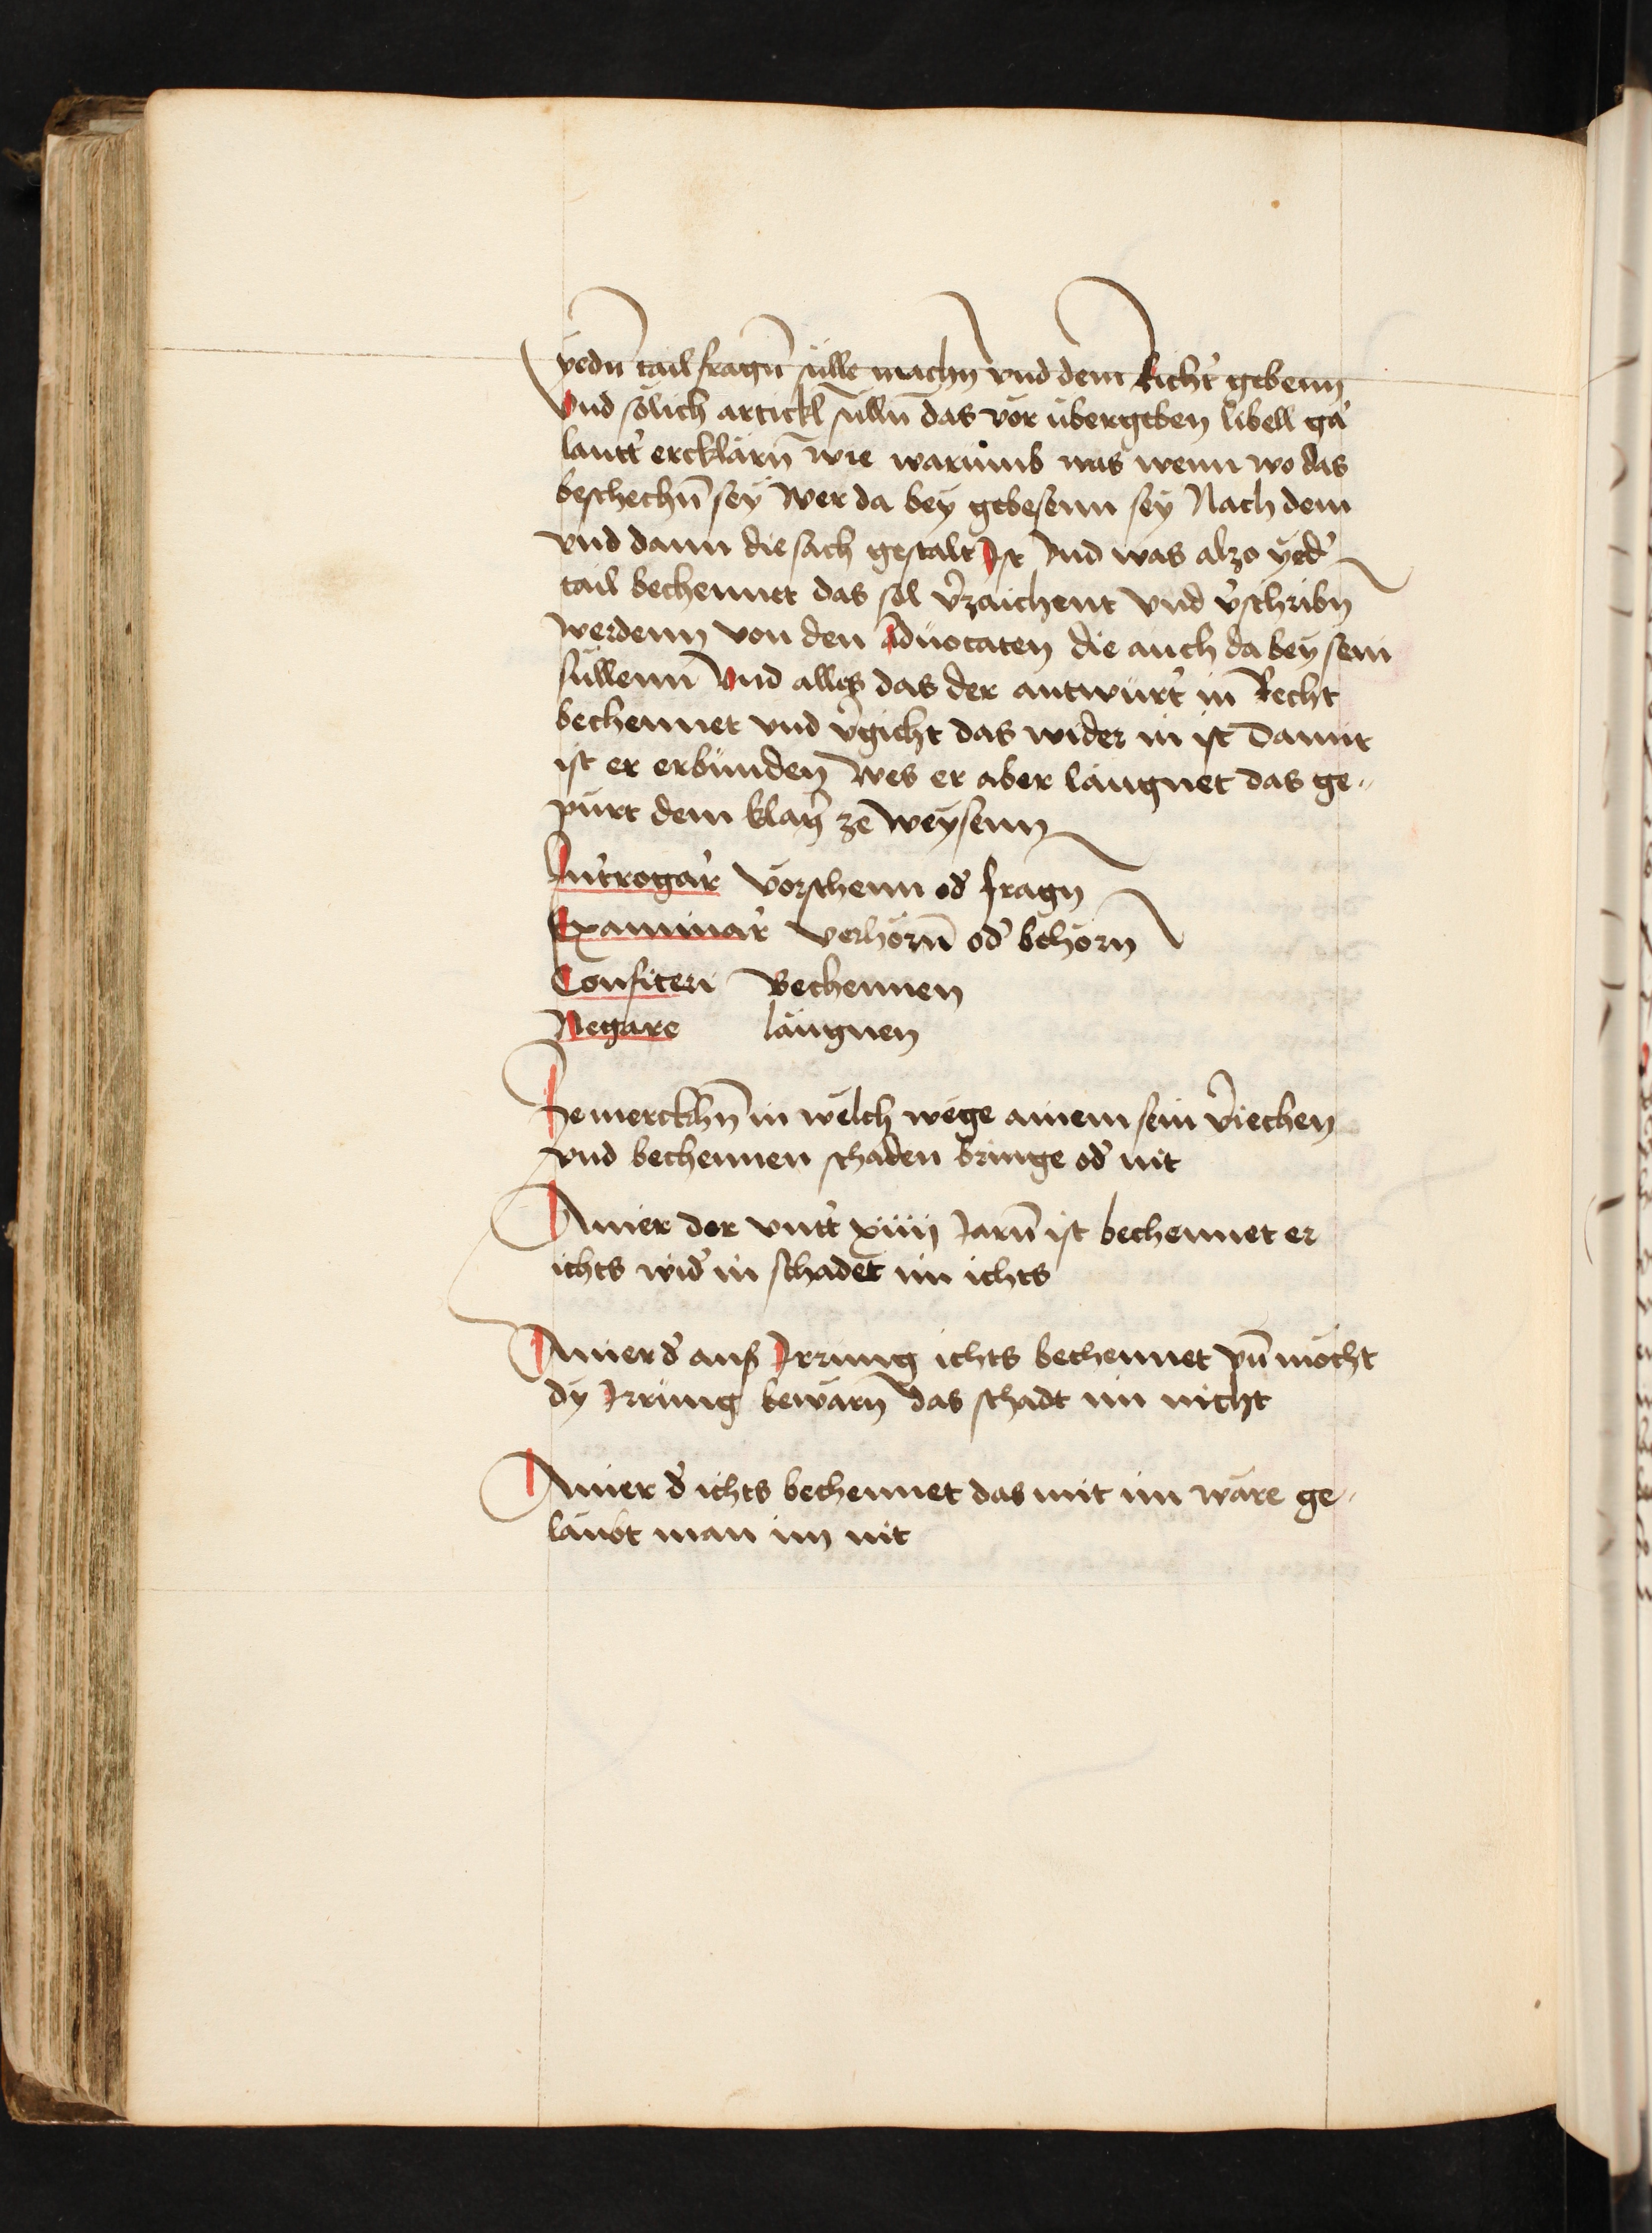 yedn̄ tail fragn̄ sülle machn vnd dem Richt' gebenn
Vnd sölich artickl sülln̄ das vor übergeben libell gar
lautt' ercklärn̄ wie warumb was wenn wo das
beschechn̄ sey Wer da bey gebesenn sey Nach dem
vnd dann die sach gestalt Ist Vnd was alzo yed'
tail bechennet das sol v'zaichent Vnd v'schribn
werdenn von den Aduocaten die auch da bey sein
süllenn Vnd alles das der antwürt' in Recht
bechennet vnd v'gicht das wider in ist Damit
ist er erbunden Wes er aber laugnet das ge„
pürt dem klag' ze weysenn
Int'rogar' Vorschenn od' fragn
Examinar' Verhörn̄ od' behörn
Confiteri Bechennen
Negare läugnen
Ze merckhn̄ in welch wege ainem sein v'iechen
vnd bechennen schaden bringe od' nit
Ainer der vntt' xiiij Jarn̄ ist bechennet er
ichts wid' in schadet im ichts
Ainer d' auß Irrung ichts bechennet vn̄ möcht
dy Irrung bewärn das schadt im nicht
Ainer d' ichts bechennet das mit im wäre ge„
laubt man im nit